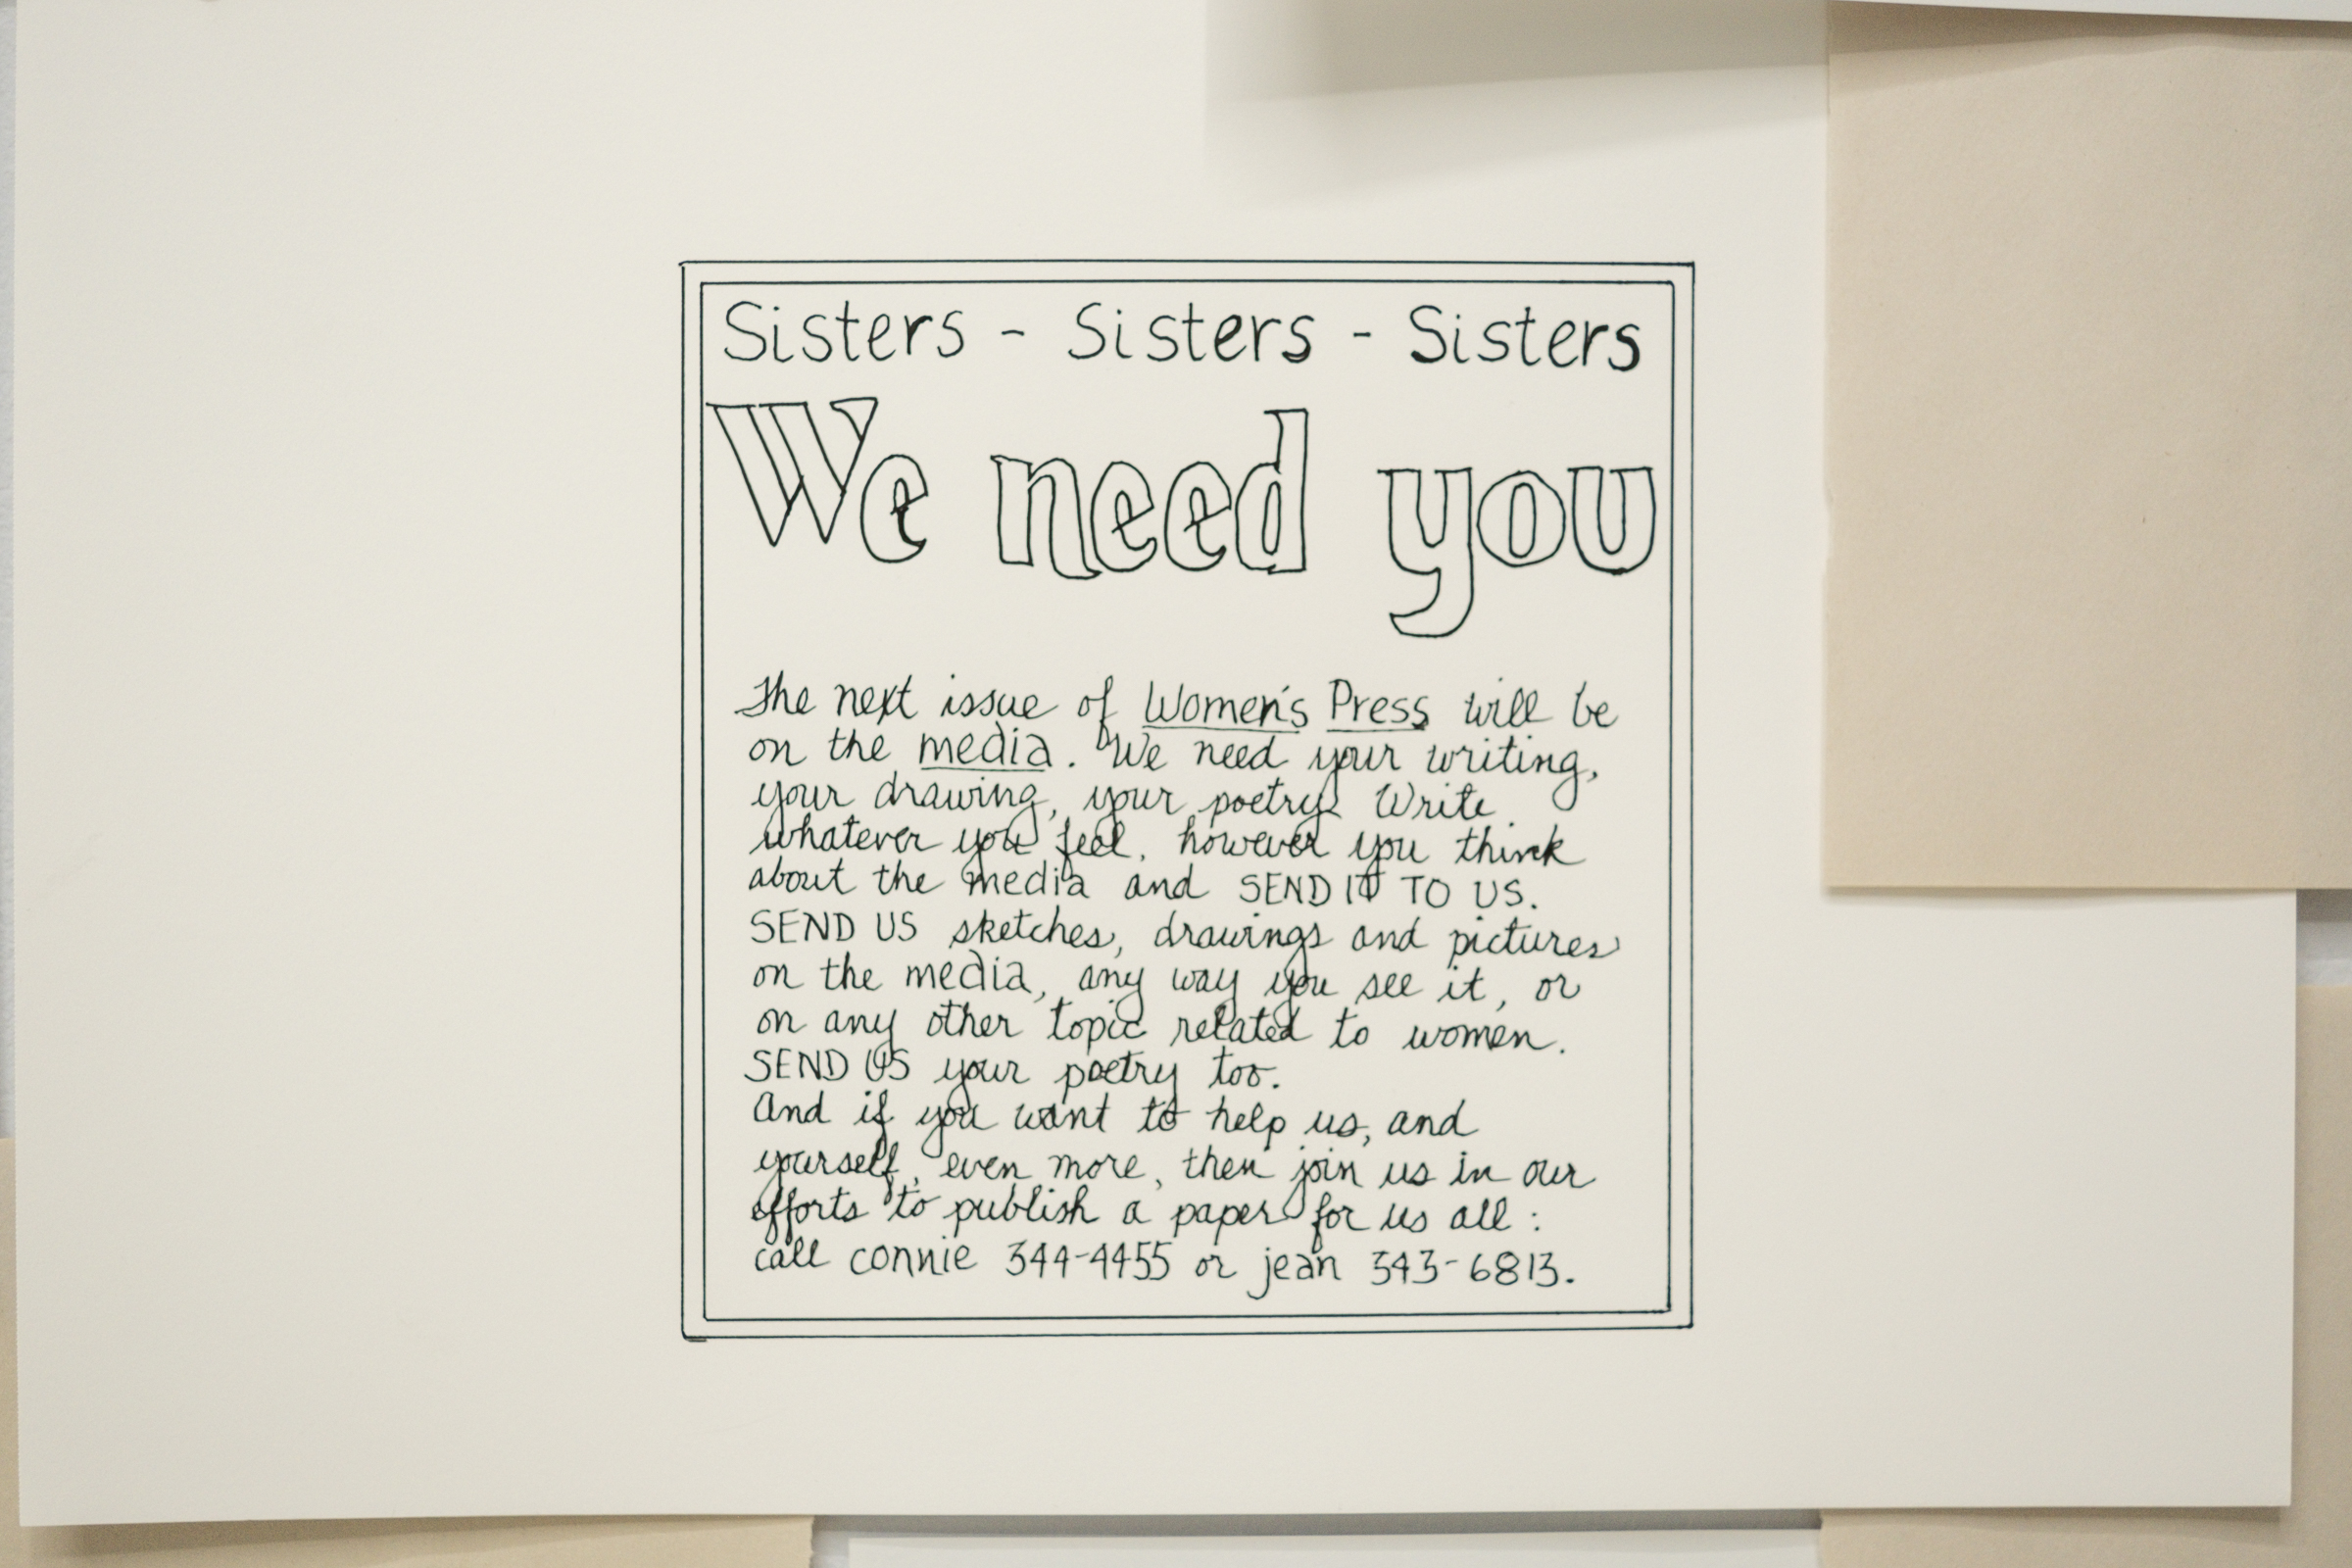 Sisters - Sisters - Sisters
We need you
The next issue of Women's Press will be
on the media. We need your writing,
your drawing, your poetry. Write
whatever you feel, however you think
about the media and SEND IT TO US.
SEND US sketches, drawings and pictures
on the media, any way you see it, or
on any other topic related to women.
SEND US your poetry too.
And if you want to help us, and
yourself, even more, then join us in our
efforts to publish a paper for us all:
call connie 344-4455 or jean 343-6813.